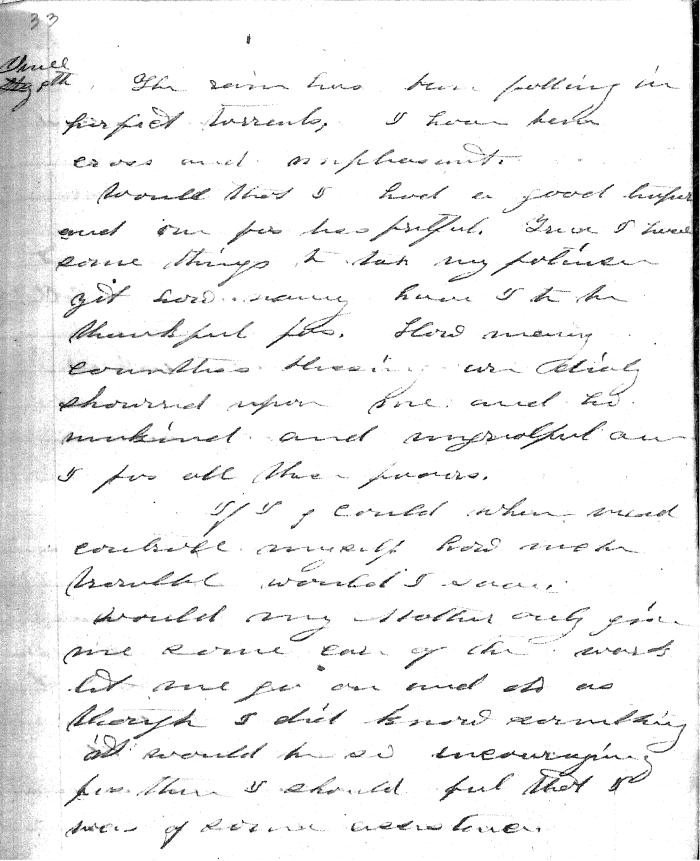 33
The rain has been falling in
perfect torrents, I have been
cross and unpleasant.
Would that I had a good temper
and one far less fretful. True I have
some things to tax my patience
yet how many have I to be
thankful for. How many
countless blessings are daily
showered upon me and how
unkind and ungrateful am
I for all these favors.
If I could when mad
control myself how much
trouble would I save.
Would my Mother only give
me some care of the wards
let me go on and do as
though I did know something
it would be so encouraging
for then I should feel that I
was of some assistance